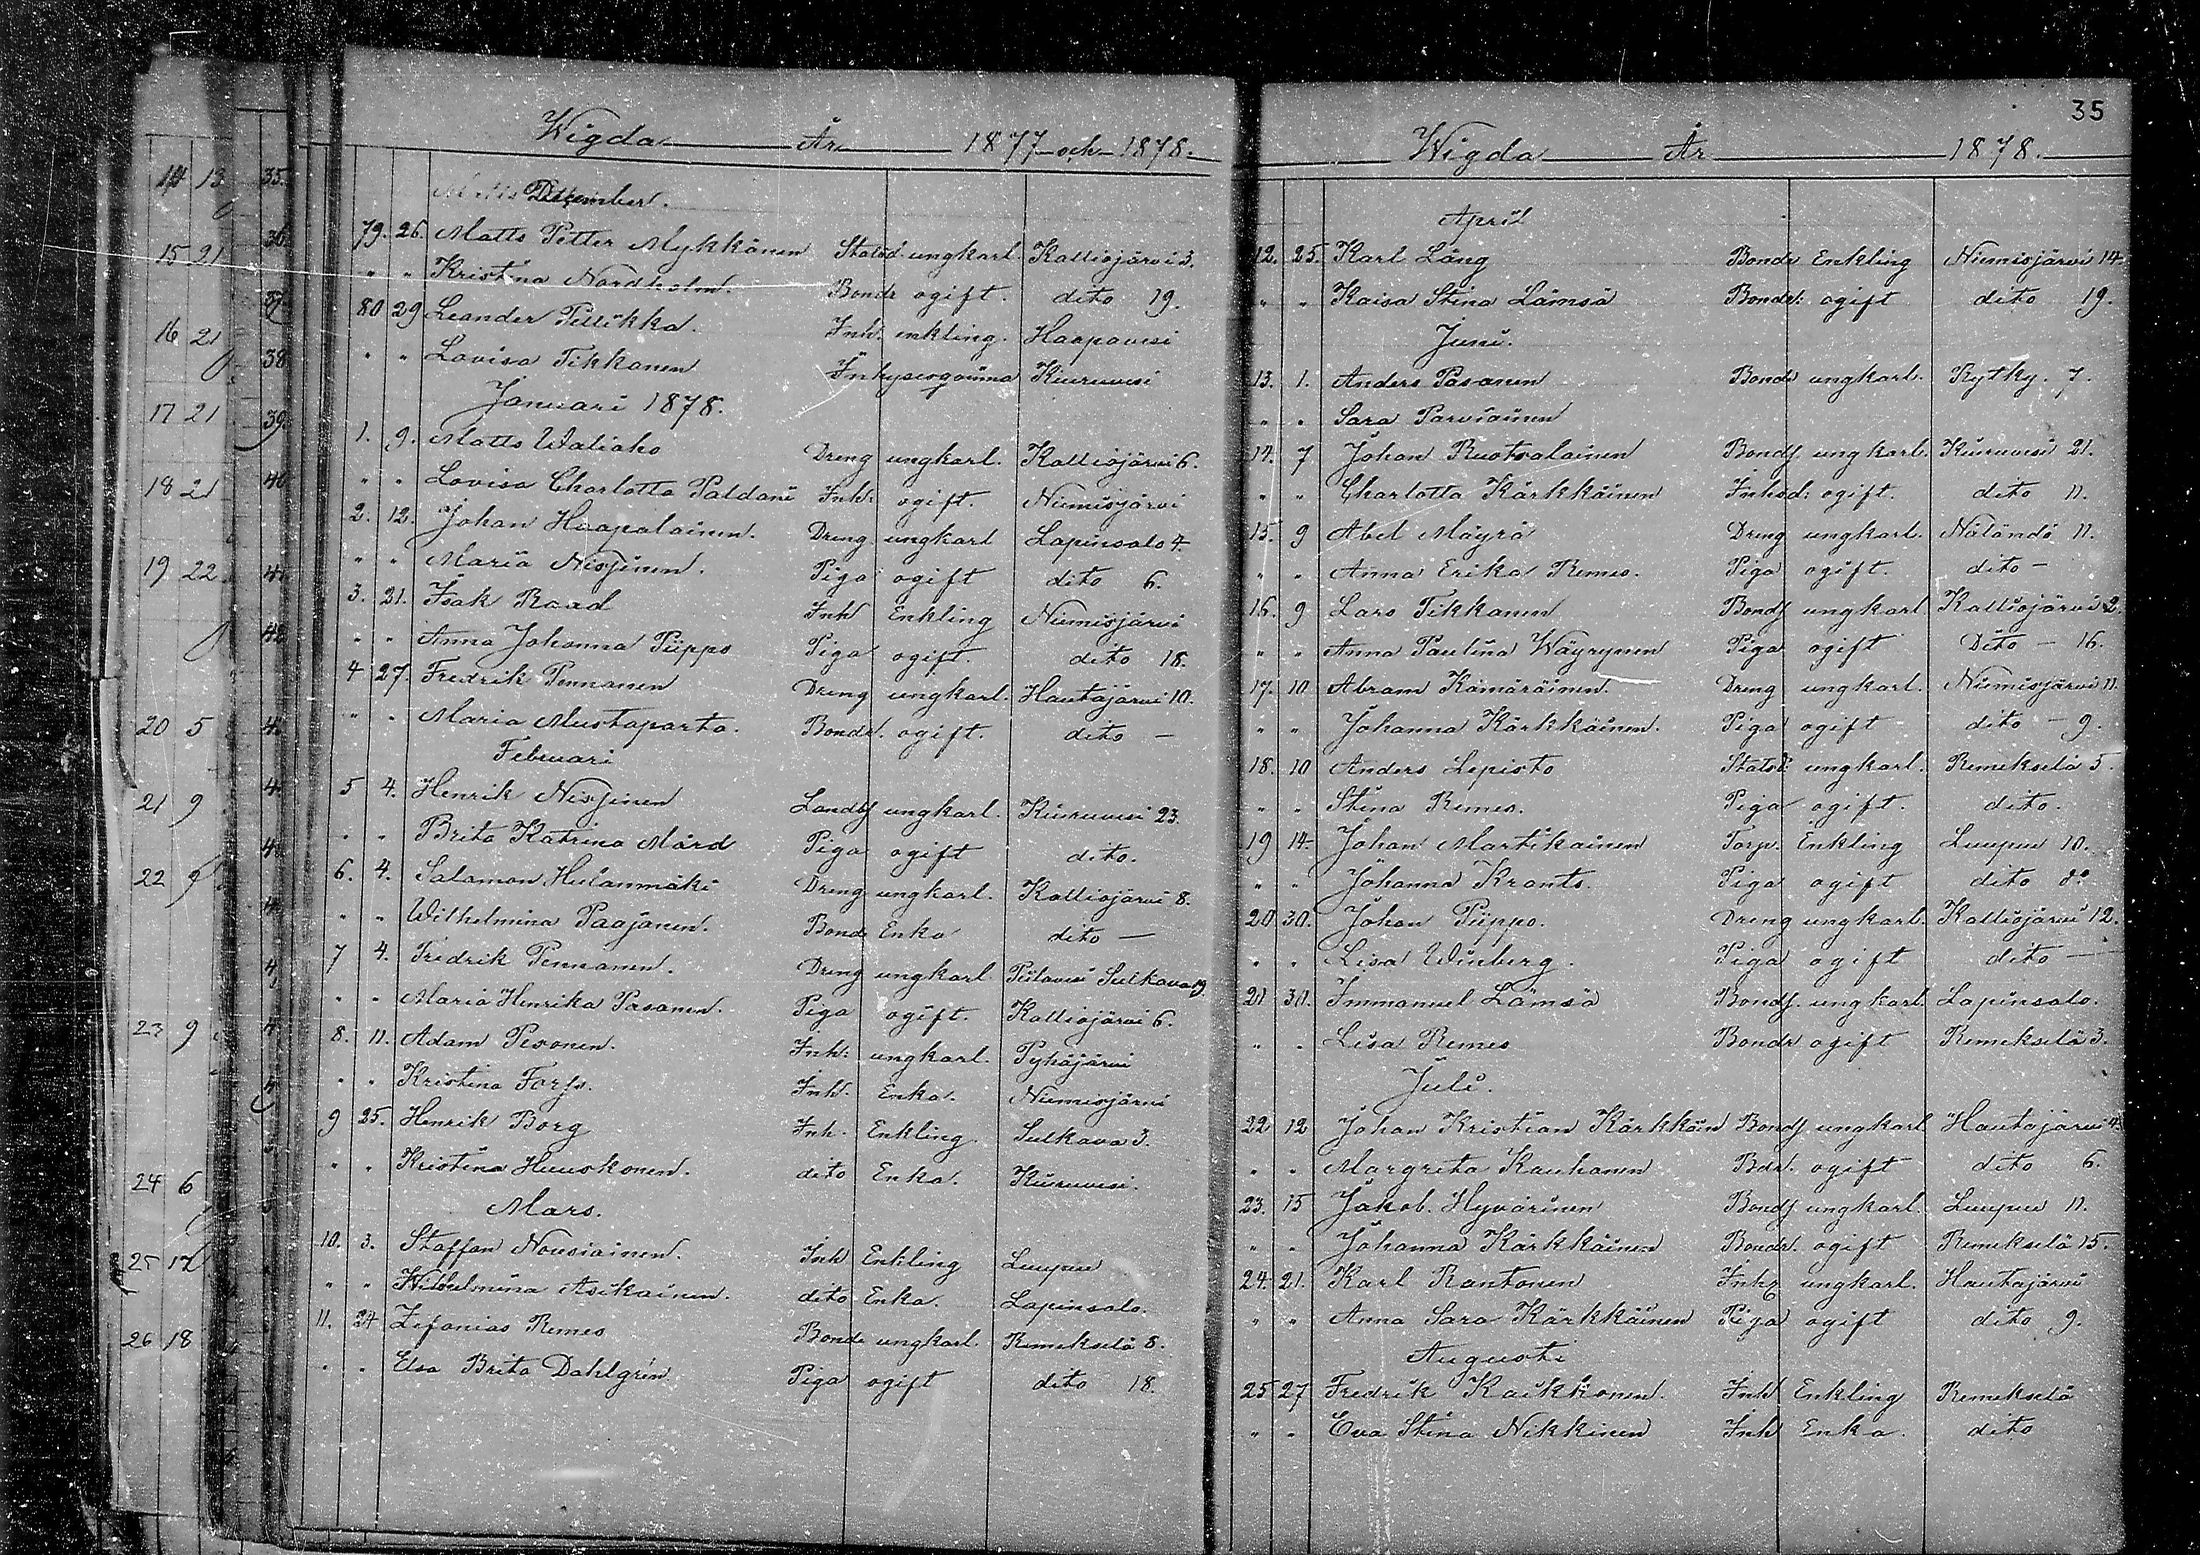 Wigda År 1877 och 1878.
December.
79. 26. Matts Petter Mykkänen Statsd. ungkarl. Kalliojärvi 3.
" " Kristina Nordholm. Bondr ogift. dito 19.
80 29 Leander Pellikka. Inh. enkling. Haapavesi
" " Lovisa Tikkanen Kiuruvesi
Januari 1878.
1. 9. Matts Waliaho Dreng ungkarl. Kalliojärvi 6.
" " Lovisa Charlotta Paldani Inh: ogift. Niemisjärvi
2. 12. Johan Haapalainen. Dreng ungkarl Lapinsalo 4.
" " Maria Nissinen. Piga ogift dito 6.
3. 21. Isak Raad Inh Enkling Niemisjärvi
" " Anna Johanna Piippo Piga ogift. dito 18.
4 27. Fredrik Pennanen Dreng ungkarl. Hautajärvi 10.
" " Maria Mustaparta. Bondd. ogift. dito —
Februari
5 4. Henrik Nissinen Landbf ungkarl. Kiuruvesi 23.
" " Brita Katrina Mård Piga ogift dito.
6. 4. Salamon Hulanmäki Dreng ungkarl. Kalliojärvi 8.
" " Wilhelmina Paajanen. Bond Enka dito —
7 4. Fredrik Pennanen. Dreng ungkarl. Pielavesi Sulkava 19.
" " Maria Henrika Pasanen. Piga ogift. Kalliojärvi 6.
8. 11. Adam Pesonen. Inh: ungkarl. Pyhäjärvi
" " Kristina Forss. Inh. Enka. Niemisjärvi
9 25. Henrik Borg Inh. Enkling Sulkava 3.
" " Kristina Huuskonen. dito Enka. Kiuruvesi.
Mars.
10. 3. Staffan Nousiainen. Inh Enkling Luupuu
" " Wilhelmina Asikainen. dito Enka. Lapinsalo.
11. 24 Zefanias Remes Bonde ungkarl. Remekselä 8.
" " Elsa Brita Dahlgrén Piga ogift dito 18.
35
Wigda År 1878.
April
12. 25. Karl Lång Bonde Enkling Niemisjärvi 14.
" " Kaisa Stina Lämsä Bondd: ogift dito 19.
Juni.
13. 1. Anders Pasanen Bonde ungkarl. Rytky. 7.
" " Sara Parviainen
14. 7 Johan Ruotsalainen Bondf ungkarl. Kiuruvesi 21.
" " Charlotta Kärkkäinen Inhsd: ogift. dito 11.
15. 9 Abel Mäyrä Dreng ungkarl. Näläntö 11.
" " Anna Erika Remes. Piga ogift. dito —
16. 9 Lars Tikkanen Bondf ungkarl Kalliojärvi 2.
" " Anna Paulina Wäyrynen Piga ogift Dito — 16.
17. 10 Abram Kämäräinen. Dreng ungkarl. Niemisjärvi 11.
" " Johanna Kärkkäinen. Piga ogift dito — 9.
18. 10 Anders Lepisto Statsd: ungkarl. Remekselä 5.
" " Stina Remes. Piga ogift. dito.
19 14. Johan Martikainen Torp. Enkling Luupuu 10.
" " Johanna Krants. Piga ogift dito do
20 30. Johan Piippo. Dreng ungkarl. Kalliojärvi 12.
" " Lisa Winberg. Piga ogift dito —
21 30. Immanuel Lämsä Bondf. ungkarl. Lapinsalo.
" " Lisa Remes Bondd ogift Remekselä 3.
Juli.
22 12 Johan Kristian Kärkkäin Bondf ungkarl Hautajärvi 4.
" " Margreta Kauhanen Bdd. ogift dito 6.
23. 15 Jakob. Hyvärinen Bondf ungkarl. Luupuu 11.
" " Johanna Kärkkäinen Bondd. ogift Remekselä 15.
24. 21. Karl Rantonen ungkarl. Hautajärvi
" " Anna Sara Kärkkäinen Piga ogift dito 9.
Augusti
25 27 Fredrik Kaikkonen. Inh Enkling Remekselä
" " Eva Stina Nikkinen Inh Enka dito
14 13
15 21
16 21
17 21
18 21
19 22
20 5
21 9
22 9
23 9
24 6
25 12
26 18
35.
36
37
38
39.
40